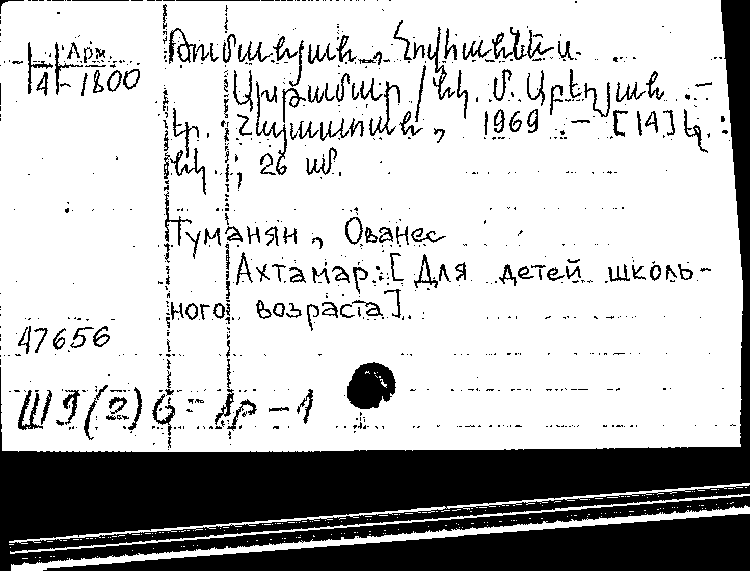 Арм.
4-1800
Թումանյան, Հովհաննես.
Ախթամար / Նկ. Մ. Աբեղյան. —
Եր. : Հայաստան, 1969. — [14] էջ. :
նկ. ; 26 սմ.
Туманян, Ованес
Ахтамар: [Для детей школь-
ного возраста].
47656
Ш9(2)6=Ар-1